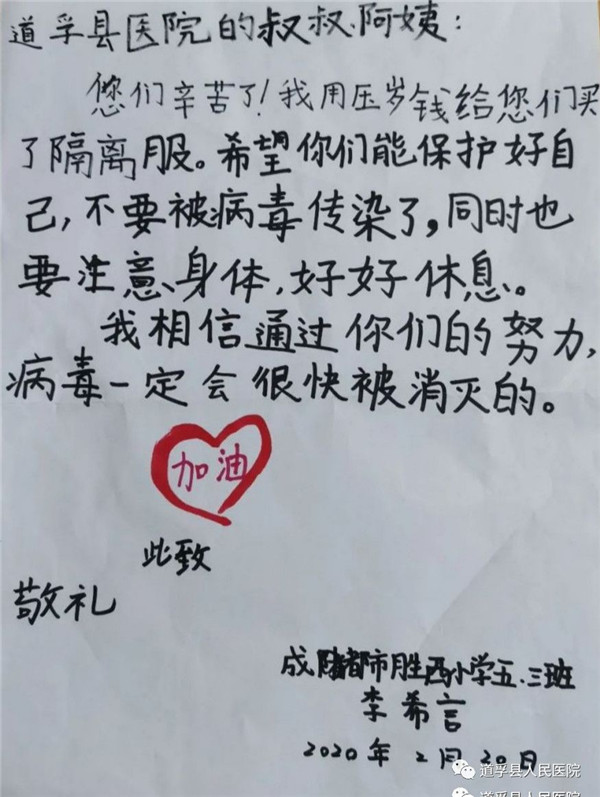 道孚县医院的叔叔、阿姨：
您们辛苦了！我用压岁钱给您们买
了隔离服。希望你们能保护好自
己，不要被病毒传染了，同时也
要注意身体，好好休息。
我相信通过你们的努力，
病毒一定会很快被消灭的。
加油
此致
敬礼
成都市胜西小学五.三班
李希言
2020年2月20日
道孚县人民医院
道孚县人民医院